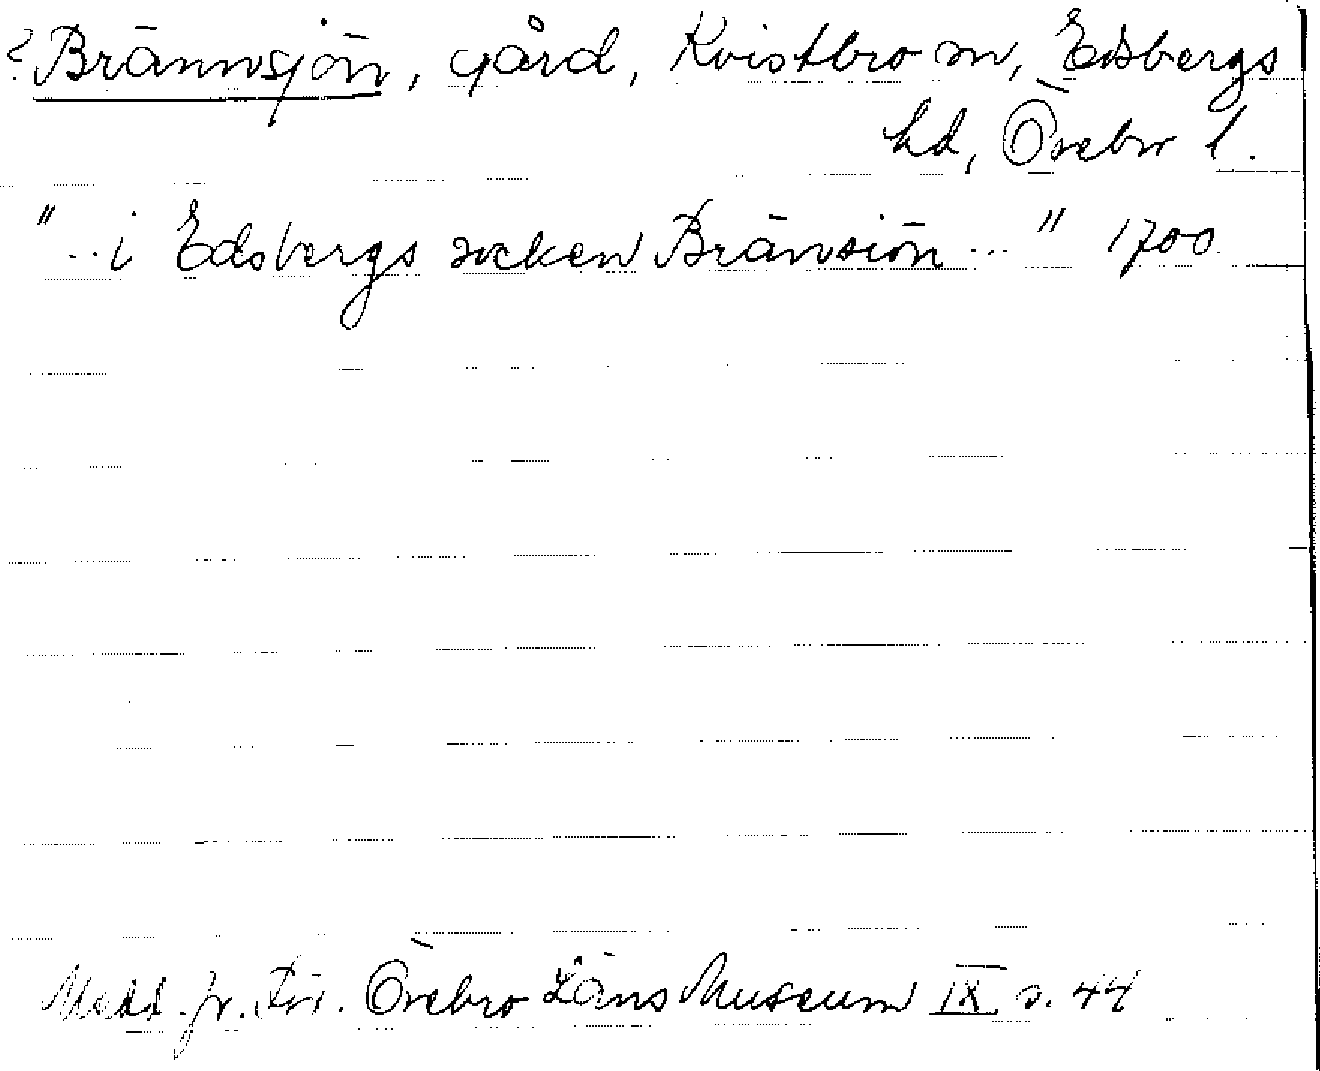 ? Brännsjön, gård, Kvistbro sn, Edsbergs
hd, Örebro l.
"...i Edsbergs socken Bränsiön..." 1700
Medd. fr. För. Örebro Läns Museum IX s. 44